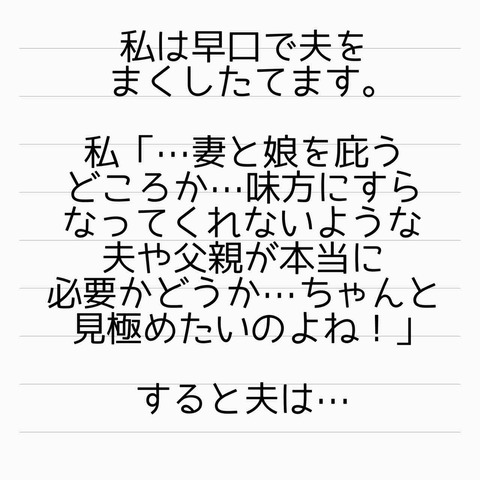 私は早口で夫を
まくしたてます。
私「…妻と娘を庇う
どころか…味方にすら
なってくれないような
夫や父親が本当に
必要かどうか…ちゃんと
見極めたいのよね！」
すると夫は…